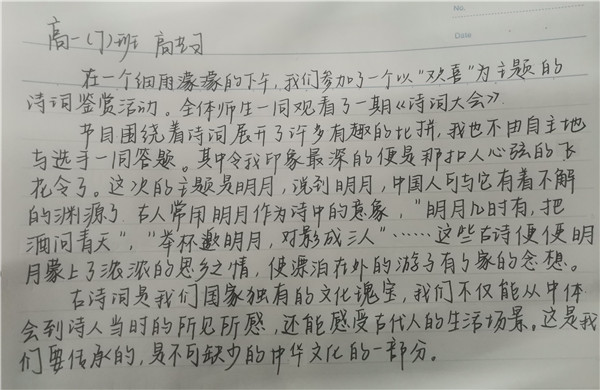 No.
Date
高一(7)班
在一个细雨濛濛的下午,我们参加了一个以“欢喜”为主题的
诗词鉴赏活动。全体师生一同观看了一期《诗词大会》.
节目围绕着诗词展开了许多有趣的比拼,我也不由自主地
与选手一同答题。其中令我印象最深的便是那扣人心弦的飞
花令了。这次的主题是明月,说到明月,中国人可与它有着不解
的渊源了.古人常用明月作为诗中的意象,“明月几时有,把
酒问青天”,“举杯邀明月,对影成三人”……这些古诗便使明
月蒙上了浓浓的思乡之情,使漂泊在外的游子有了家的念想。
古诗词是我们国家独有的文化瑰宝,我们不仅能从中体
会到诗人当时的所见所感,还能感受古代人的生活场景。这是我
们要传承的,是不可缺少的中华文化的一部分。